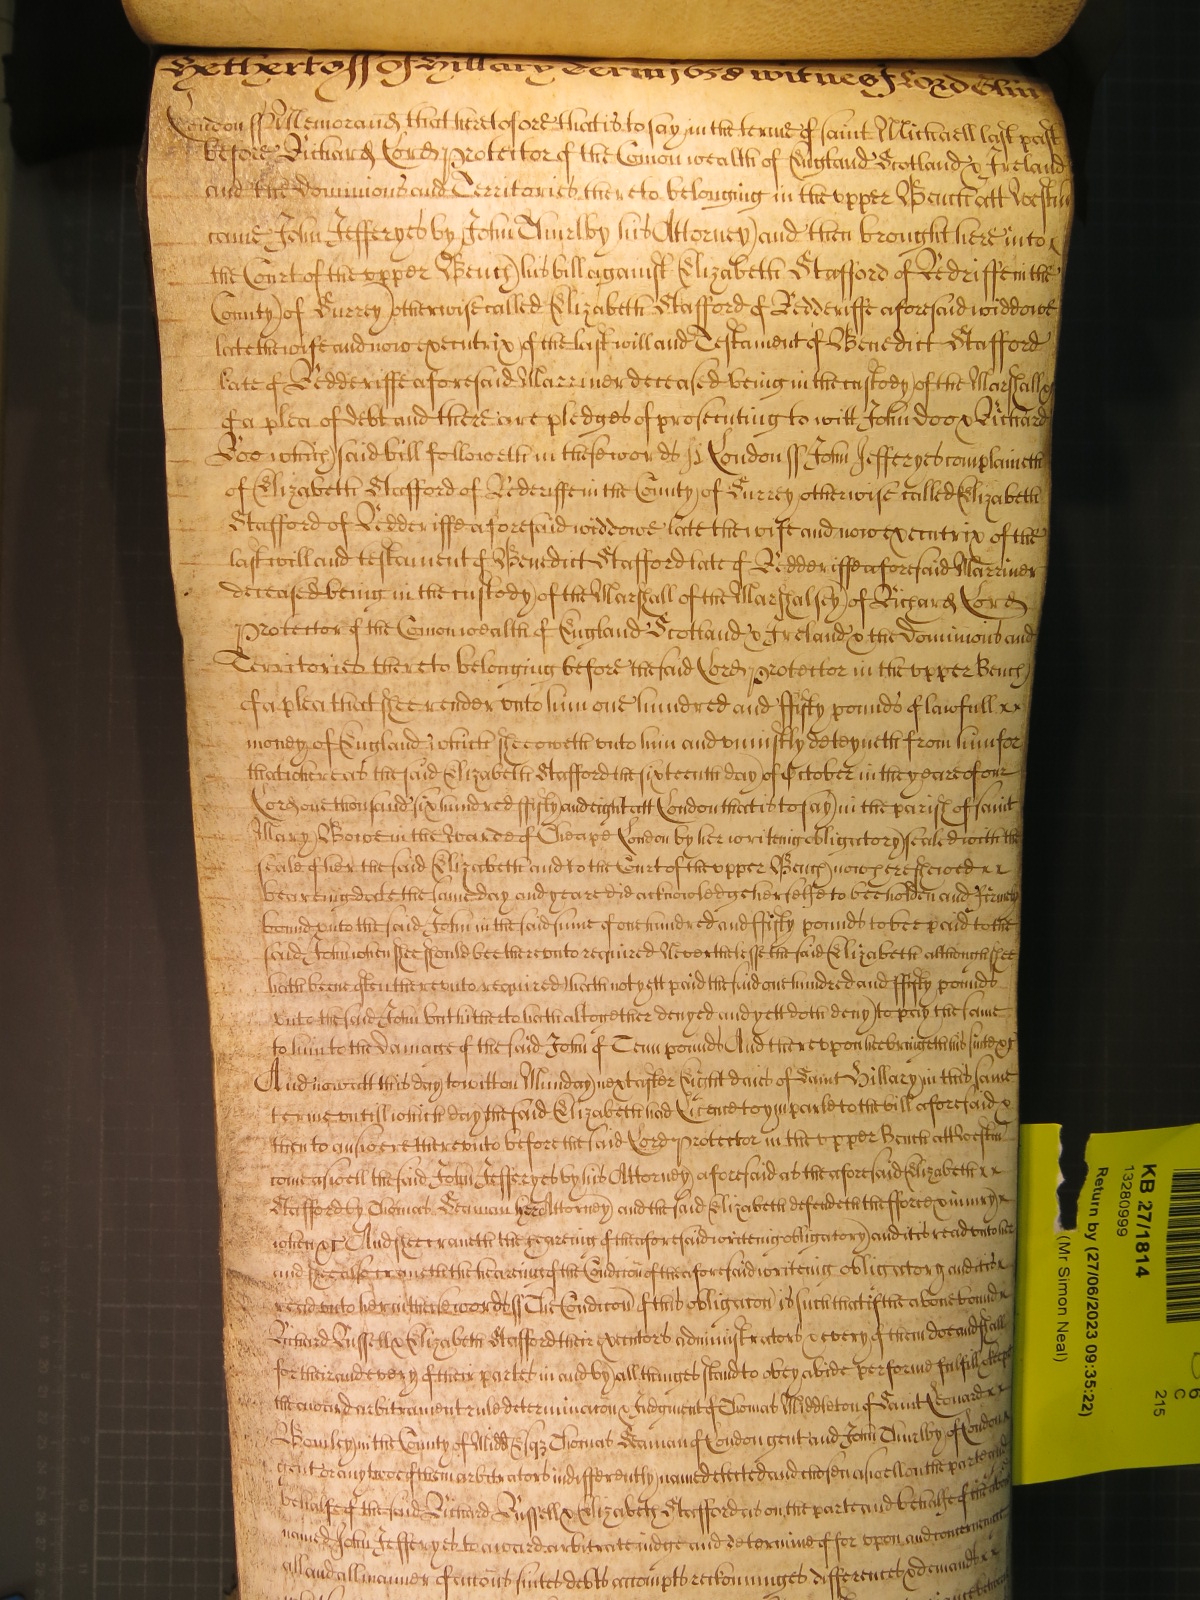 Yet her Ro ss of Hillary Terme 1658 witnes J Lord
London ss Memorand that heretofore that is to say in the terme of saint Michaell last past
before Richard Lord Protector of the Comonwealth of England Scotland & Ireland
and the Dominions and Territories thereto belonging in the vpper Bench att Westm
came John Jefferyes by John Thurlby his Attorney and then brought here into x
the Court of the vpper Bench his bill against Elizabeth Stafford of Redriffe in the
County of Surrey otherwise called Elizabeth Stafford of Redderiffe aforesaid widdowe
late the wife and now executrix of the last will and Testament of Benedict Stafford
late of Redderiffe aforesaid Marriner deceased being in the custody of the Marshall &c
of a plea of debt and there are pledges of prosecuting to witt John Doo & Richard
Roo which said bill followeth in these words ss London ss John Jefferyes complaineth
of Elizabeth Stafford of Rederiffe in the County of Surrey otherwise called Elizabeth
Stafford of Redderiffe aforesaid widdowe late the wife and now executrix of the
last will and testament of Benedict Stafford late of Redderiffe aforesaid Marriner
deceased being in the custody of the Marshall of the Marshalsey of Richard Lord
Protector of the Comonwealth of England Scotland & Ireland & the Dominions and
Territories thereto belonging before the said Lord Protector in the vpper Bench
of a plea that shee render vnto him one hundred and ffifty pounds of lawfull xx
money of England which shee oweth vnto him and vniustly deteyneth from him for
that whereas the said Elizabeth Stafford the sixteenth day of October in the yeare of our
Lord one thousand six hundred ffifty and eight att London that is to say in the parish of saint
Mary Bowe in the Warde of Cheape London by her writeing obligatory sealed with the
seale of her the said Elizabeth and to the Court of the vpper Bench now here shewed xx
beareing date the same day and yeare did acknowledge her selfe to bee holden and firmely
bound vnto the said John in the said sume of one hundred and ffifty pounds to bee paid to the
said John when shee should bee therevnto required Neverthelesse the said Elizabeth although shee
hath beene often therevnto required hath not yett paid the said one hundred and ffifty pounds
vnto the said John but hitherto hath altogether denyed and yett doth deny to pay the same
to him to the Damage of the said John of Tenn pounds And therevpon hee bringeth his suite &c
And now att this day to witt on Munday next after Eight daies of Saint Hillary in this same
terme vntill which day the said Elizabeth had Licence to imparle to the bill aforesaid &
then to answere therevnto before the said Lord Protector in the vpper Bench att Westm
come aswell the said John Jefferyes by his Attorney aforesaid as the aforesaid Elizabeth xx
Stafford by Thomas Seaman her Attorney and the said Elizabeth defendeth the fforce & iniury &
when &c And shee craveth the heareing of the aforesaid writeing obligatory and it is read vnto her
and shee alsoe craveth the heareing of the Condicon of the aforesaid writeing obligatory and it is x
read vnto her in these words ss The Condicon of this obligacon is such that if the above bound x
Richard Russell & Elizabeth Stafford their executors administrators & every of them doe and shall
for their and every of their partes in and by all thinges stand to obey abide performe fulfill & keepe
the award arbitrament rule determinacon & Judgment of Thomas Middleton of Saint Leonard xx
Bromley in the County of Midd Esqz Thomas Seaman of London gent and John Thurlby of London
gent or any twoe of them arbitrators indifferently named elected and chosen aswell on the parte and
behalfe of the said Richard Russell & Elizabeth Stafford as on the parte and behalfe of the above
named John Jefferyes to award arbitrate iudge and determine of for vpon and concerneinge
all and all manner of accons suites debts accompts reckoninges differences & demands xx
KB 27/1814
13280999
Return by (27/06/2023 09:35:22)
(Mr Simon Neal)
C
215